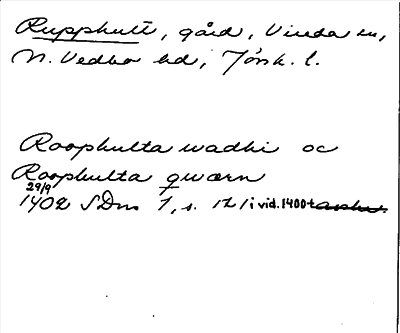 Rupphult, gård, Virda sn,
N. Vedbo hd, Jönk. l.
Roophulta wadhi oc
Roophulta qwærn
29/9
1402 SDns 1, s. 12 1 i vid. 1400t